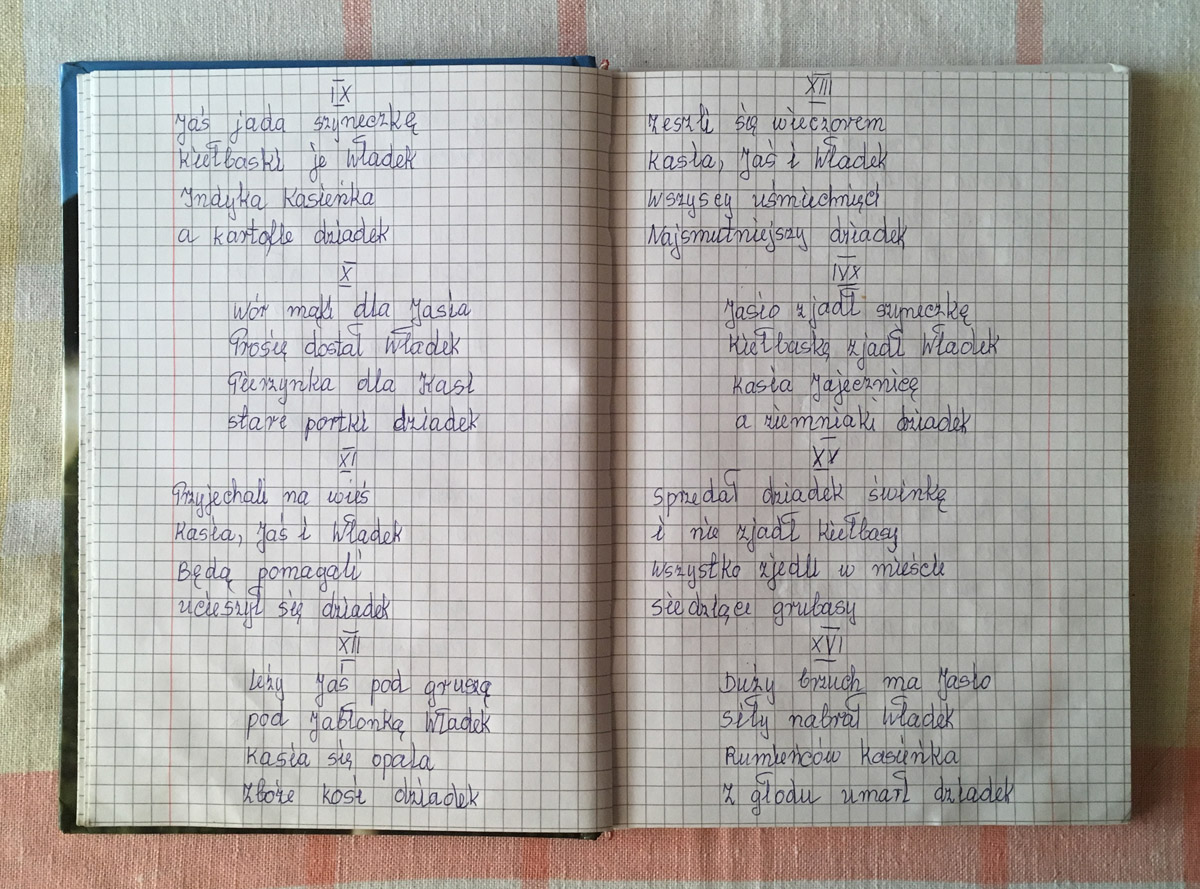 IX
Jaś jada szyneczkę
kiełbaski je Władek
Indyka Kasieńka
a kartofle dziadek
X
Wór mąki dla Jasia
Prosię dostał Władek
Pierzynka dla Kasi
stare portki dziadek
XI
Przyjechali na wieś
Kasia, Jaś i Władek
Będą pomagali
ucieszył się dziadek
XII
Leży Jaś pod gruszą
pod Jabłonką Władek
Kasia się opala
Zboże kosi dziadek
XIII
Zeszli się wieczorem
Kasia, Jaś i Władek
Wszyscy uśmiechnięci
Najsmutniejszy dziadek
IVX
Jasio zjadł szyneczkę
Kiełbaskę zjadł Władek
Kasia Jajecznicę
a ziemniaki dziadek
XV
Sprzedał dziadek świnkę
i nie zjadł kiełbasy
Wszystko zjedli w mieście
siedzące grubasy
XVI
Duży brzuch ma Jasio
siły nabrał Władek
Rumieńców Kasieńka
Z głodu umarł dziadek